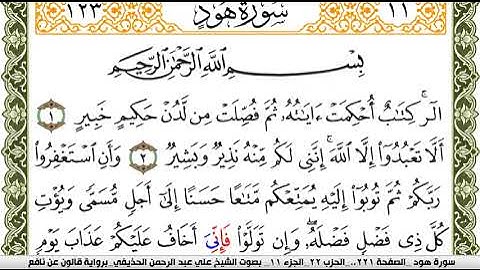 ١١ سُورَةُ هُودٍ ١٢٣
بِسْمِ اللَّهِ الرَّحْمَٰنِ الرَّحِيمِ
الٓرۚ كِتَٰبٌ أُحْكِمَتْ ءَايَٰتُهُۥ ثُمَّ فُصِّلَتْ مِن لَّدُنْ حَكِيمٍ خَبِيرٍ ١
أَلَّا تَعْبُدُوٓا۟ إِلَّا اللَّهَۚ إِنَّنِى لَكُم مِّنْهُ نَذِيرٌ وَبَشِيرٌ ٢ وَأَنِ اسْتَغْفِرُوا۟
رَبَّكُمْ ثُمَّ تُوبُوٓا۟ إِلَيْهِ يُمَتِّعْكُم مَّتَٰعًا حَسَنًا إِلَىٰٓ أَجَلٍ مُّسَمًّى وَيُؤْتِ
كُلَّ ذِى فَضْلٍ فَضْلَهُۥۖ وَإِن تَوَلَّوْا۟ فَإِنِّىَ أَخَافُ عَلَيْكُمْ عَذَابَ يَوْمٍ
سورة هود _الصفحة ٢٢١.. الحزب ٢٢_ الجزء ١١_ بصوت الشيخ علي عبد الرحمن الحذيفي_ برواية قالون عن نافع